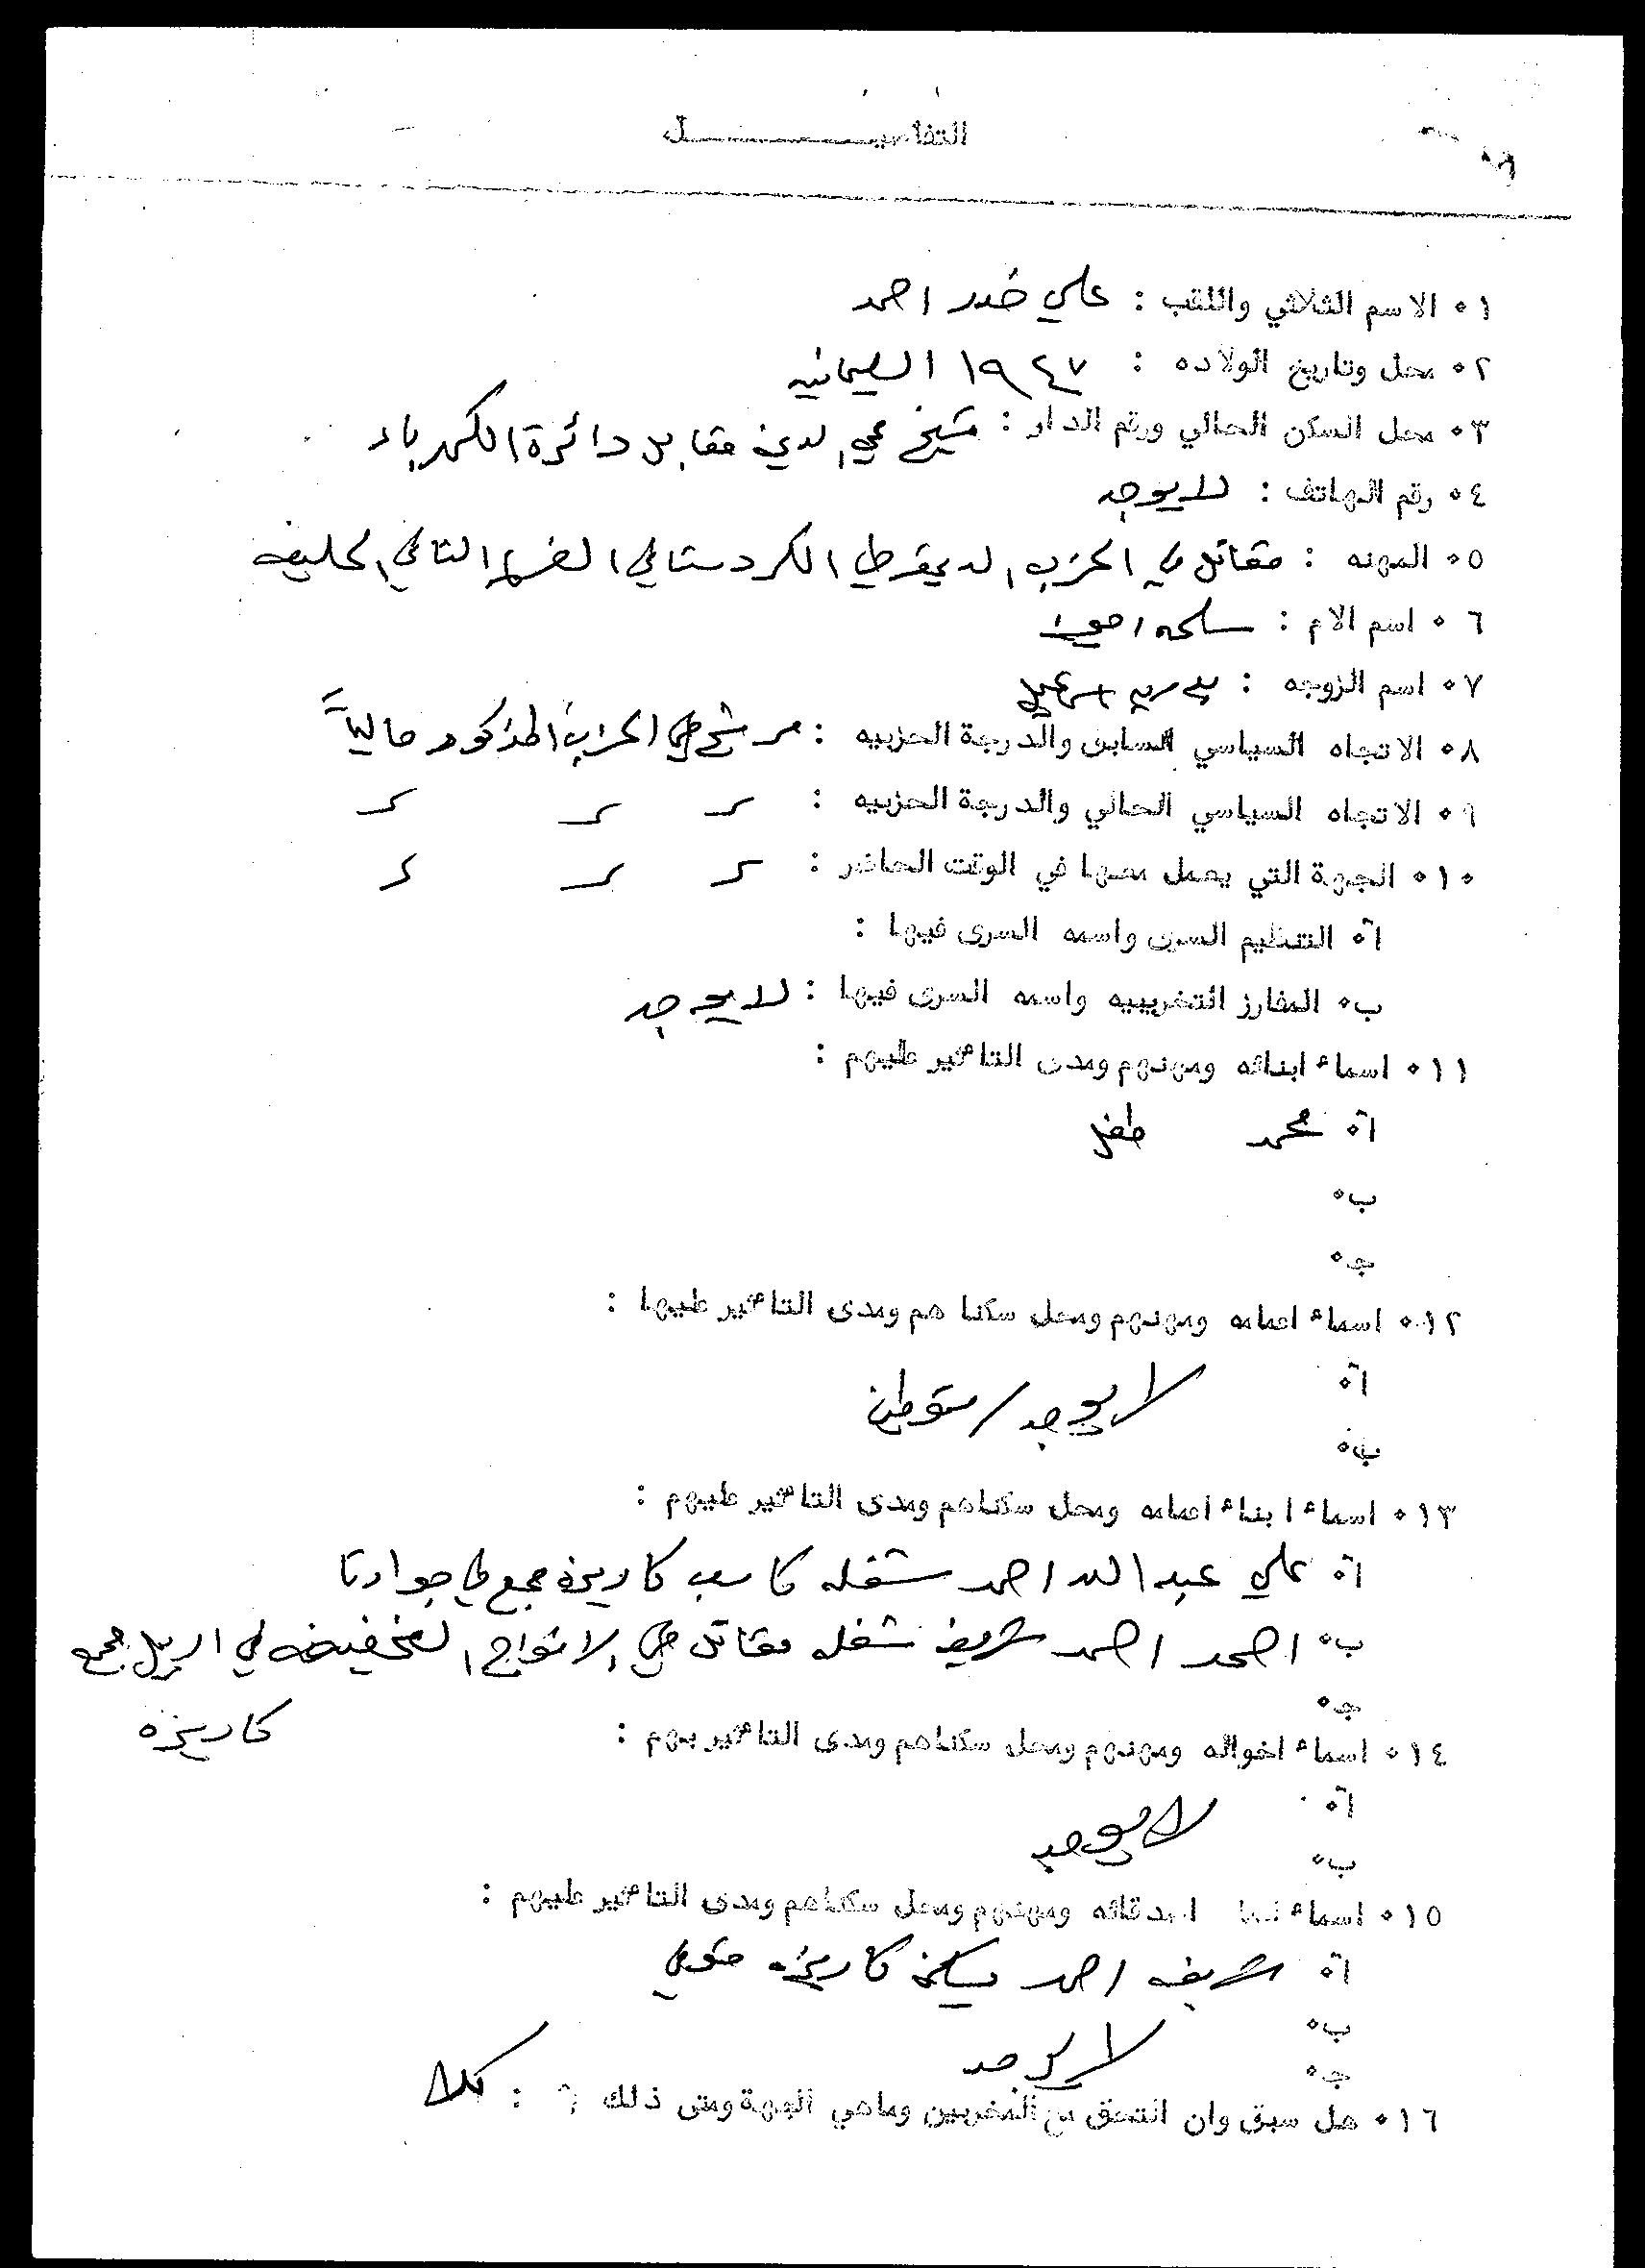 التفاصيل
٠١ الاسم الثلاثي واللقب : علي خدر احمد
٠٢ محل وتاريخ الولاده : ١٩٤٧ السليمانيه
٠٣ محل السكن الحالي ورقم الدار : شيخ محي الدين مقابل دائرة الكهرباء
٠٤ رقم الهاتف : لا يوجد
٠٥ المهنه : مقاتل في الحزب الديمقرطي الكردستاني الفرع الثاني الحليفه
٠٦ اسم الام : سلحه
٠٧ اسم الزوجه :
٠٨ الاتجاه السياسي السابق والدرجة الحزبيه : مرشح في الحزب المذكور حالياً
٠٩ الاتجاه السياسي الحالي والدرجة الحزبيه :
٠١٠ الجهة التي يعمل معها في الوقت الحاضر :
أ٠ التنظيم السرى واسمه السرى فيها :
ب٠ المفارز التخريبيه واسمه السرى فيها : لا يوجد
٠١١ اسماء ابنائه ومهنهم ومدى التأثير عليهم :
أ٠ محمد طفل
ب٠
ج٠
٠١٢ اسماء اعمامه ومهنهم ومحل سكنا هم ومدى التأثير عليها :
أ٠
لا يوجد / متوطين
ب٠
٠١٣ اسماء ابناء اعمامه ومحل سكناهم ومدى التأثير عليهم :
أ٠ علي عبد الله احمد شغله كاسب كاريزة مجمع في جوارتا
ب٠ احمد شريف شغله مقاتل في الافواج الخفيفه في اربيل مجمع
كاريزه
ج٠
٠١٤ اسماء اخواله ومهنهم ومحل سكناهم ومدى التأثير بهم :
أ٠
لا يوجد
ب٠
٠١٥ اسماء اصدقائه ومهنهم ومحل سكناهم ومدى التأثير عليهم :
أ٠ شريف احمد يسكن كاريزه
ب٠
لا يوجد
ج٠
٠١٦ هل سبق وان التحق مع المخربين وماهي الجهة ومتى ذلك ؟ : كلا